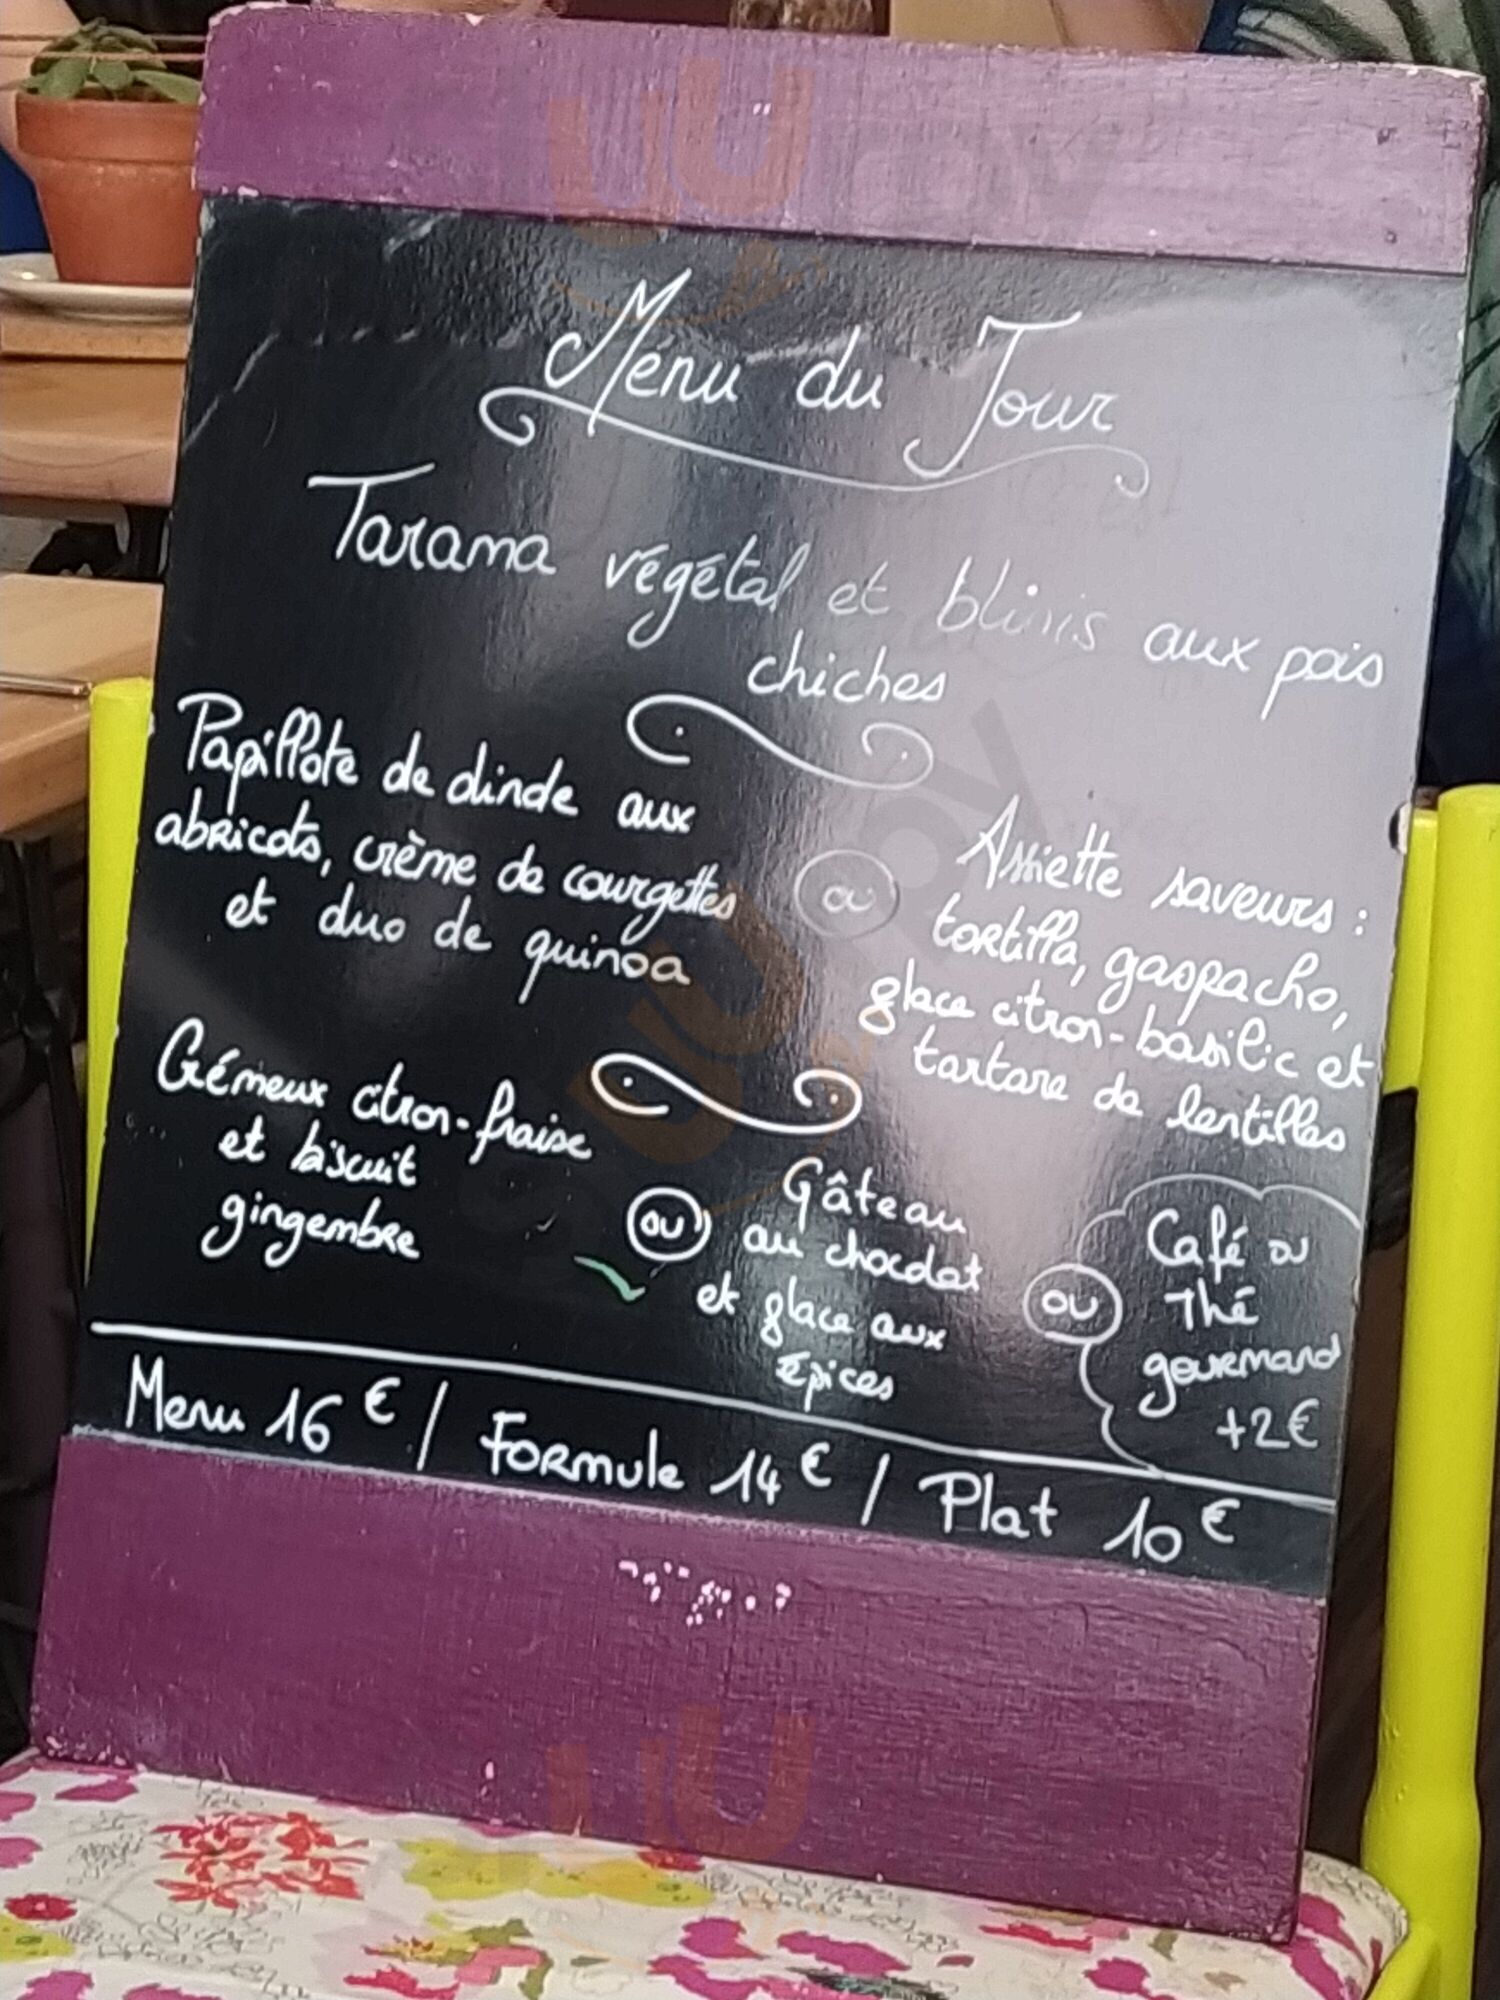 Menu du Jour
Tarama végétal et blinis aux pois
chiches
Papillote de dinde aux
abricots, crème de courgettes
et duo de quinoa
ou
Assiette saveurs :
tortilla, gaspacho,
glace citron-basilic et
tartare de lentilles
Crémeux citron-fraise
et biscuit
gingembre
ou
Gâteau
au chocolat
et glace aux
épices
ou
Café ou
Thé
gourmand
+2€
Menu 16€ / Formule 14€ / Plat 10€